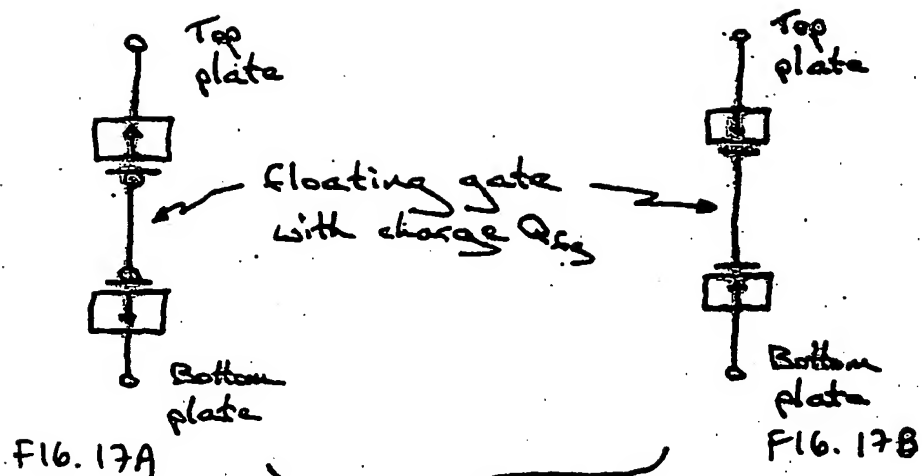 Top
plate
Top
plate
floating gate
with charge Qfg
Bottom
plate
Bottom
plate
FIG. 17A
FIG. 17B